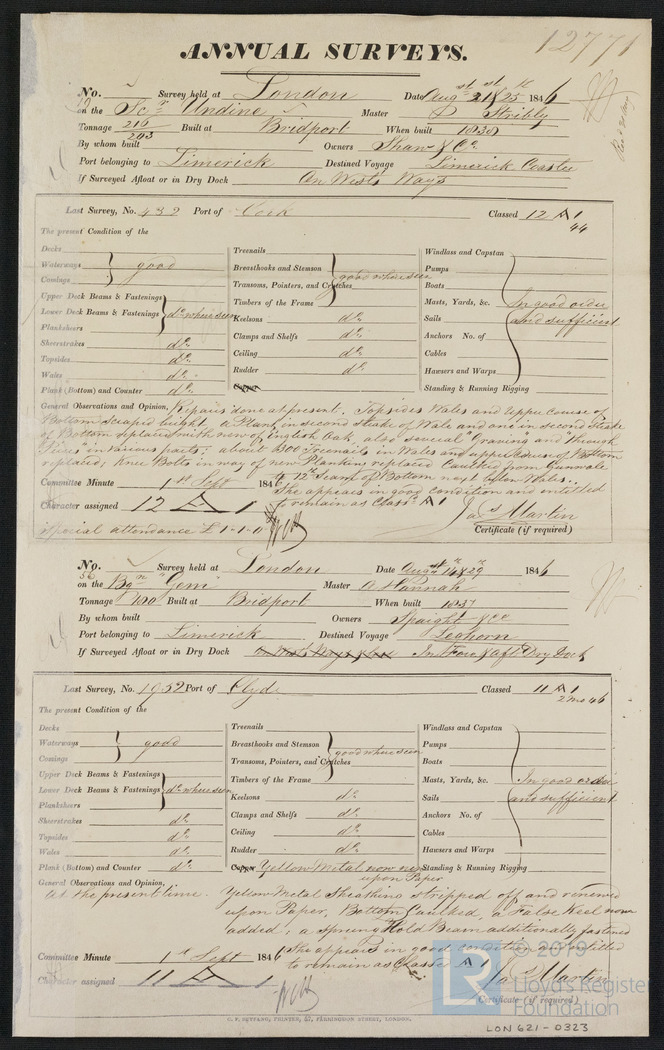 12771
ANNUAL SURVEYS.
No. Survey held at London Date Augst 21st & 25th 1846
on the Scr Undine Master P Stribly
Tonnage 216 Built at Bridport When built 1838
203
By whom built Owners Shaw & Co
Port belonging to Limerick Destined Voyage Limerick Coaster
If Surveyed Afloat or in Dry Dock On Wests Ways
Last Survey, No. 432 Port of Cork Classed 12 A 1
44
The present Condition of the
Decks
Waterways good
Comings
Upper Deck Beams & Fastenings
Lower Deck Beams & Fastenings do where seen
Plansheers
Sheerstrakes do
Topsides do
Wales do
Plank (Bottom) and Counter do
Treenails
Breasthooks and Stemson good where seen
Transoms, Pointers, and Crutches
Timbers of the Frame
Keelsons do
Clamps and Shelfs do
Ceiling do
Rudder do
Copper
Windlass and Capstan
Pumps
Boats
Masts, Yards, &c. In good order
Sails and sufficient
Anchors No. of
Cables
Hawsers and Warps
Standing & Running Rigging
General Observations and Opinion, Repairs done at present. Topsides Wales and upper course of
Bottom scraped bright, a Plank in second strake of Wale and one in second strake
of Bottom replaced with new of English Oak also several "Graving and through
Pieces" in various parts; about 300 Treenails in Wales and upper course of Bottom
replaced; Knee Bolts in way of new Planking replaced Caulked from Gunwale
to 12th Seam of Bottom next below Wales.
Committee Minute 1st Sept 1846 She appears in good condition and entitled
Character assigned 12 A 1 to remain as Classd A 1
Jas Martin
special attendance £1-1-0 Certificate (if required)
No. Survey held at London Date Augst 14th & 29th 1846
56
on the Bgn "Gem" Master A Hannah
Tonnage 100 Built at Bridport When built 1837
By whom built Owners Spaight & Co
Port belonging to Limerick Destined Voyage Leghorn
If Surveyed Afloat or in Dry Dock In Fore & Aft Dry Dock
Last Survey, No. 1952 Port of Clyde Classed 11 A 1
2 Mo 46
The present Condition of the
Decks
Waterways good
Comings
Upper Deck Beams & Fastenings
Lower Deck Beams & Fastenings do where seen
Plansheers
Sheerstrakes do
Topsides do
Wales do
Plank (Bottom) and Counter do
Treenails
Breasthooks and Stemson good where seen
Transoms, Pointers, and Crutches
Timbers of the Frame
Keelsons do
Clamps and Shelfs do
Ceiling do
Rudder do
Copper Yellow Metal now
upon Paper
Windlass and Capstan
Pumps
Boats
Masts, Yards, &c. In good order
Sails and sufficient
Anchors No. of
Cables
Hawsers and Warps
Standing & Running Rigging
General Observations and Opinion,
at the present time. Yellow Metal Sheathing stripped off and renewed
upon Paper, Bottom Caulked, a False Keel now
added, a spring Hold Beam additionally fastened
Committee Minute 1st Sept 1846 She appears in good condition and entitled
to remain as Classd A 1
Character assigned 11 A 1 Jas Martin
Certificate (if required)
© 2019
LR Lloyd's Register
Foundation
C. F. SEYFANG, PRINTER, 57, FARRINGDON STREET, LONDON.
LON 621-0323